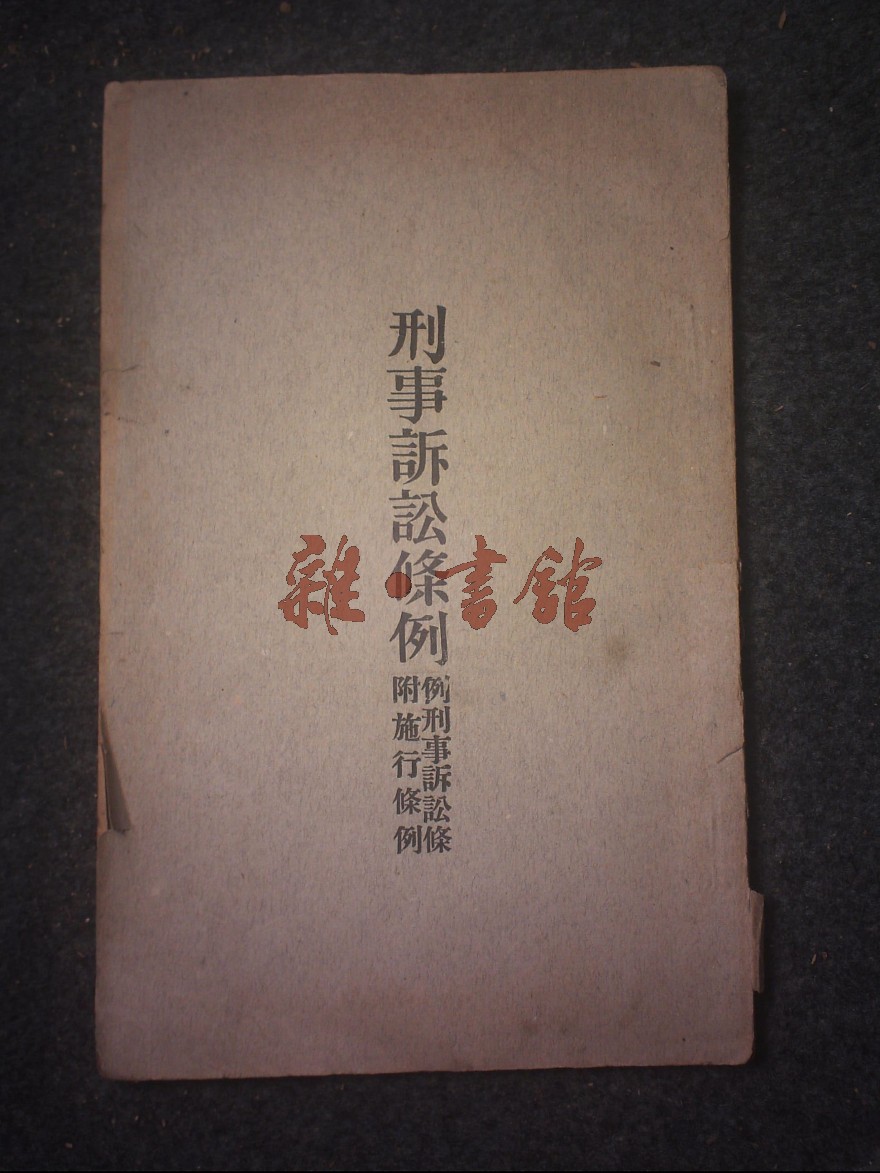 刑事訴訟條例
例刑事訴訟條
附施行條例
雜·書館